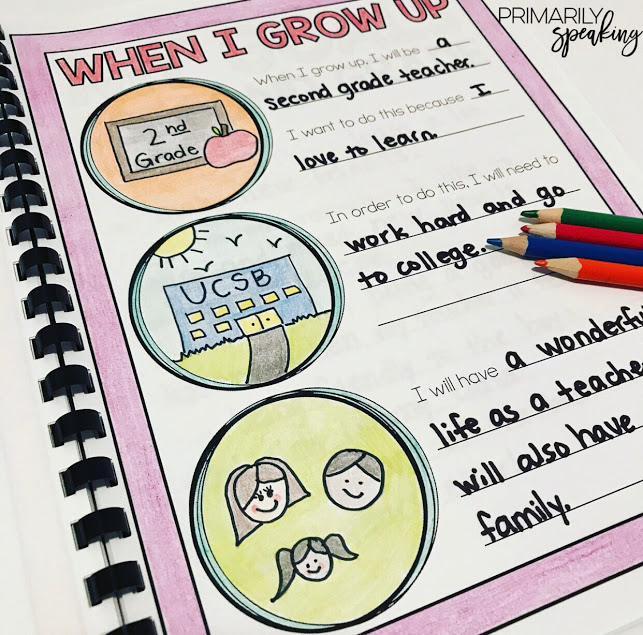 PRIMARILY
speaking
WHEN I GROW UP
When I grow up, I will be a
second grade teacher.
I want to do this because I
love to learn.
2nd
Grade
In order to do this, I will need to
work hard and go
to college.
UCSB
I will have a wonderful
life as a teache
will also have
family.